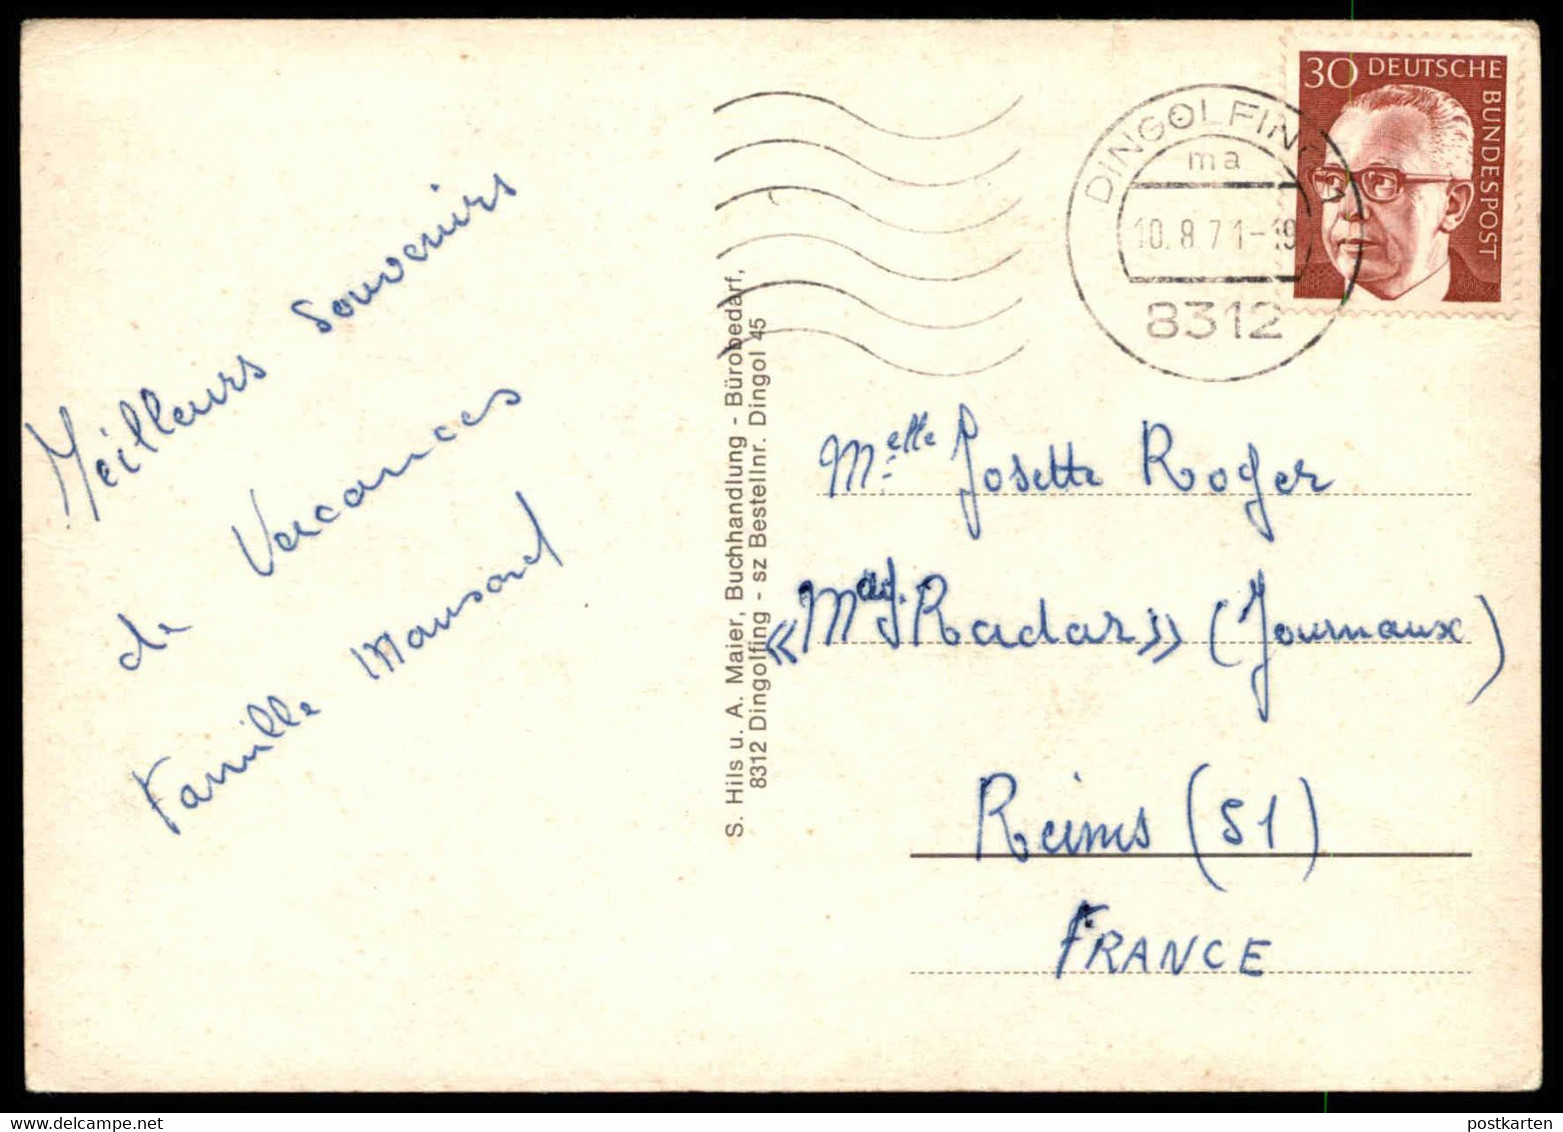 Meilleurs souvenirs
de Vacances
Famille Mansard
S. Hils u. A. Maier, Buchhandlung - Bürobedarf,
8312 Dingolfing - sz Bestellnr. Dingol 45
DINGOLFING 1
ma
10.8.71-19
8312
30 DEUTSCHE BUNDESPOST
Melle Josette Roger
« Radar » (Journaux)
Reims (51)
FRANCE
postkarten